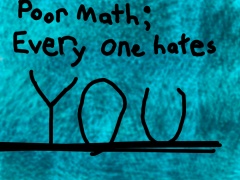 Poor Math;
Every one hates
YOU